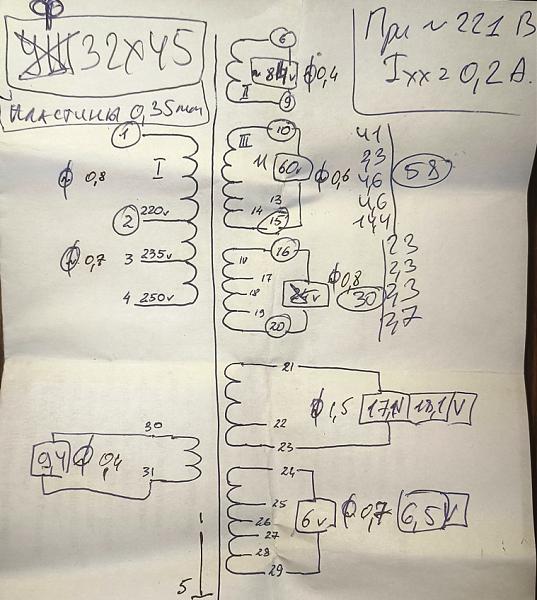 32x45
При ~ 221 В
Ixx = 0,2 А.
пластины 0,35мм
6
~ 84v
ф0,4
II
9
1
I
ф 0,8
2
220v
ф 0,7
3
235v
4
250v
III
10
11
60v
ф0,6
13
14
15
41
2,3
4,6
4,6
58
16
17
18
19
20
v
ф0,8
30
2,3
2,3
2,3
2,7
21
22
23
ф 1,5
18,1
V
30
31
ф 0,4
24
25
26
27
28
29
6v
ф 0,7
6,5
V
5